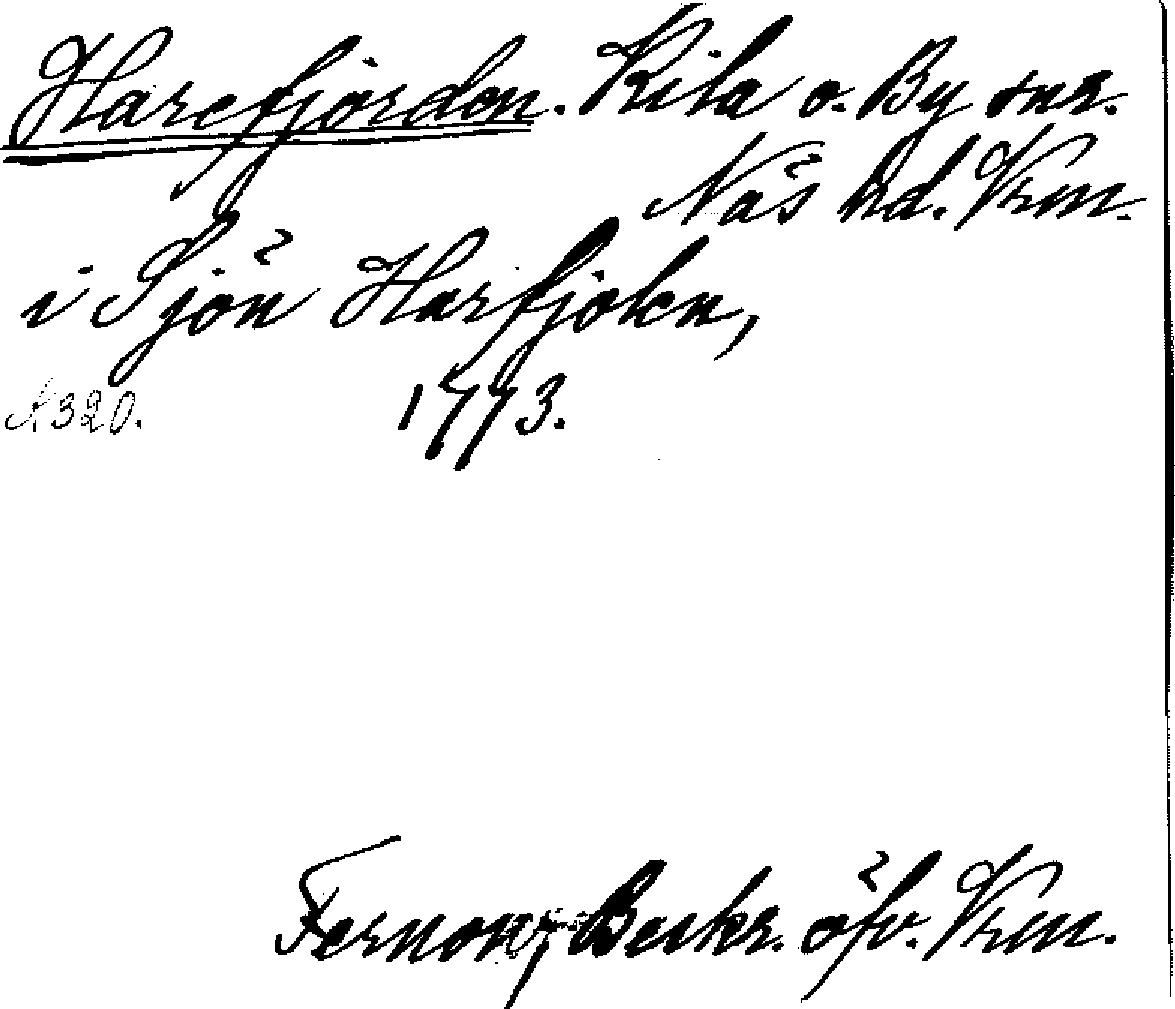 Harefjorden. Kila o. By snr.
Näs hd. Vrm.
i Sjön Harfjolen,
A320. 1773.
Fernow, Beskr. öfv. Vrm.